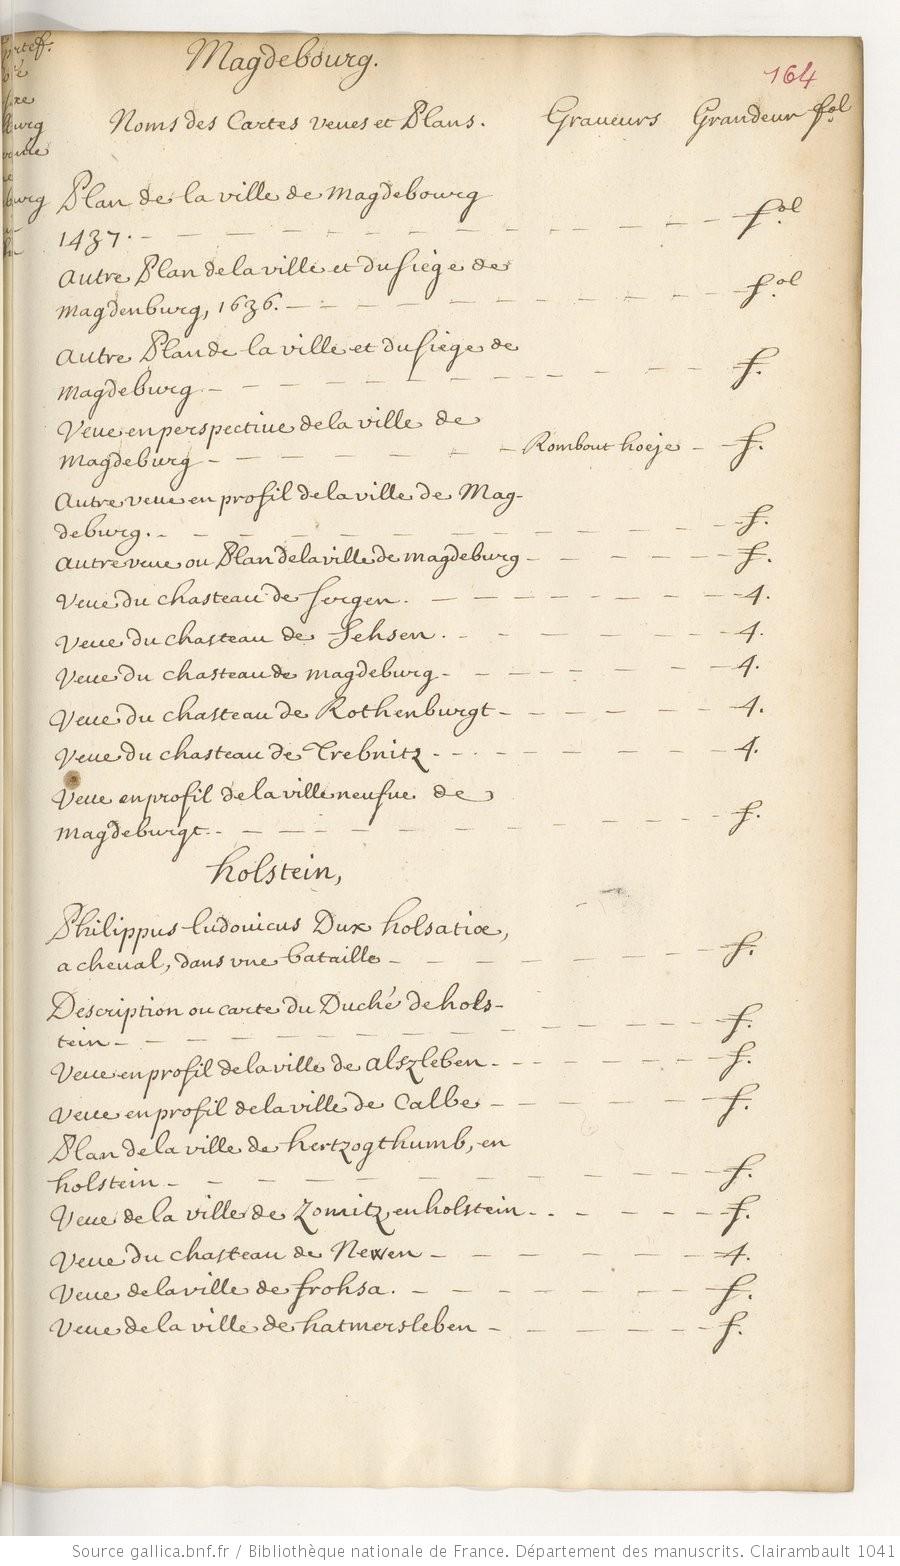 Magdebourg.
164
Noms des Cartes veues et Plans. Graveurs Grandeur fol
Plan de la ville de Magdebourg
1437. fol.
Autre Plan de la ville et du siege de
Magdenburg, 1636. fol.
Autre Plan de la ville et du siege de
Magdeburg f.
Veue en perspective de la ville de
Magdeburg Rombout hoeje f.
Autre veue en profil de la ville de Mag-
deburg. f.
Autre veue ou Plan de la ville de Magdeburg f.
Veue du chasteau de Sergen. 4.
Veue du chasteau de Sehsen. 4.
Veue du chasteau de Magdeburg 4.
Veue du chasteau de Rothenburgt 4.
Veue du chasteau de Trebnitz 4.
Veue en profil de la ville neufue de
Magdeburgt. f.
holstein,
Philippus ludovicus Dux holsatiæ,
a cheval, dans vne bataille f.
Description ou carte du Duché de hols-
tein f.
Veue en profil de la ville de alszleben f.
Veue en profil de la ville de Calbe f.
Plan de la ville de hertzogthumb, en
holstein f.
Veue de la ville de Zomitz, en holstein f.
Veue du chasteau de Newen 4.
Veue de la ville de frohsa. f.
Veue de la ville de hatmersleben f.
Source gallica.bnf.fr / Bibliothèque nationale de France. Département des manuscrits. Clairambault 1041